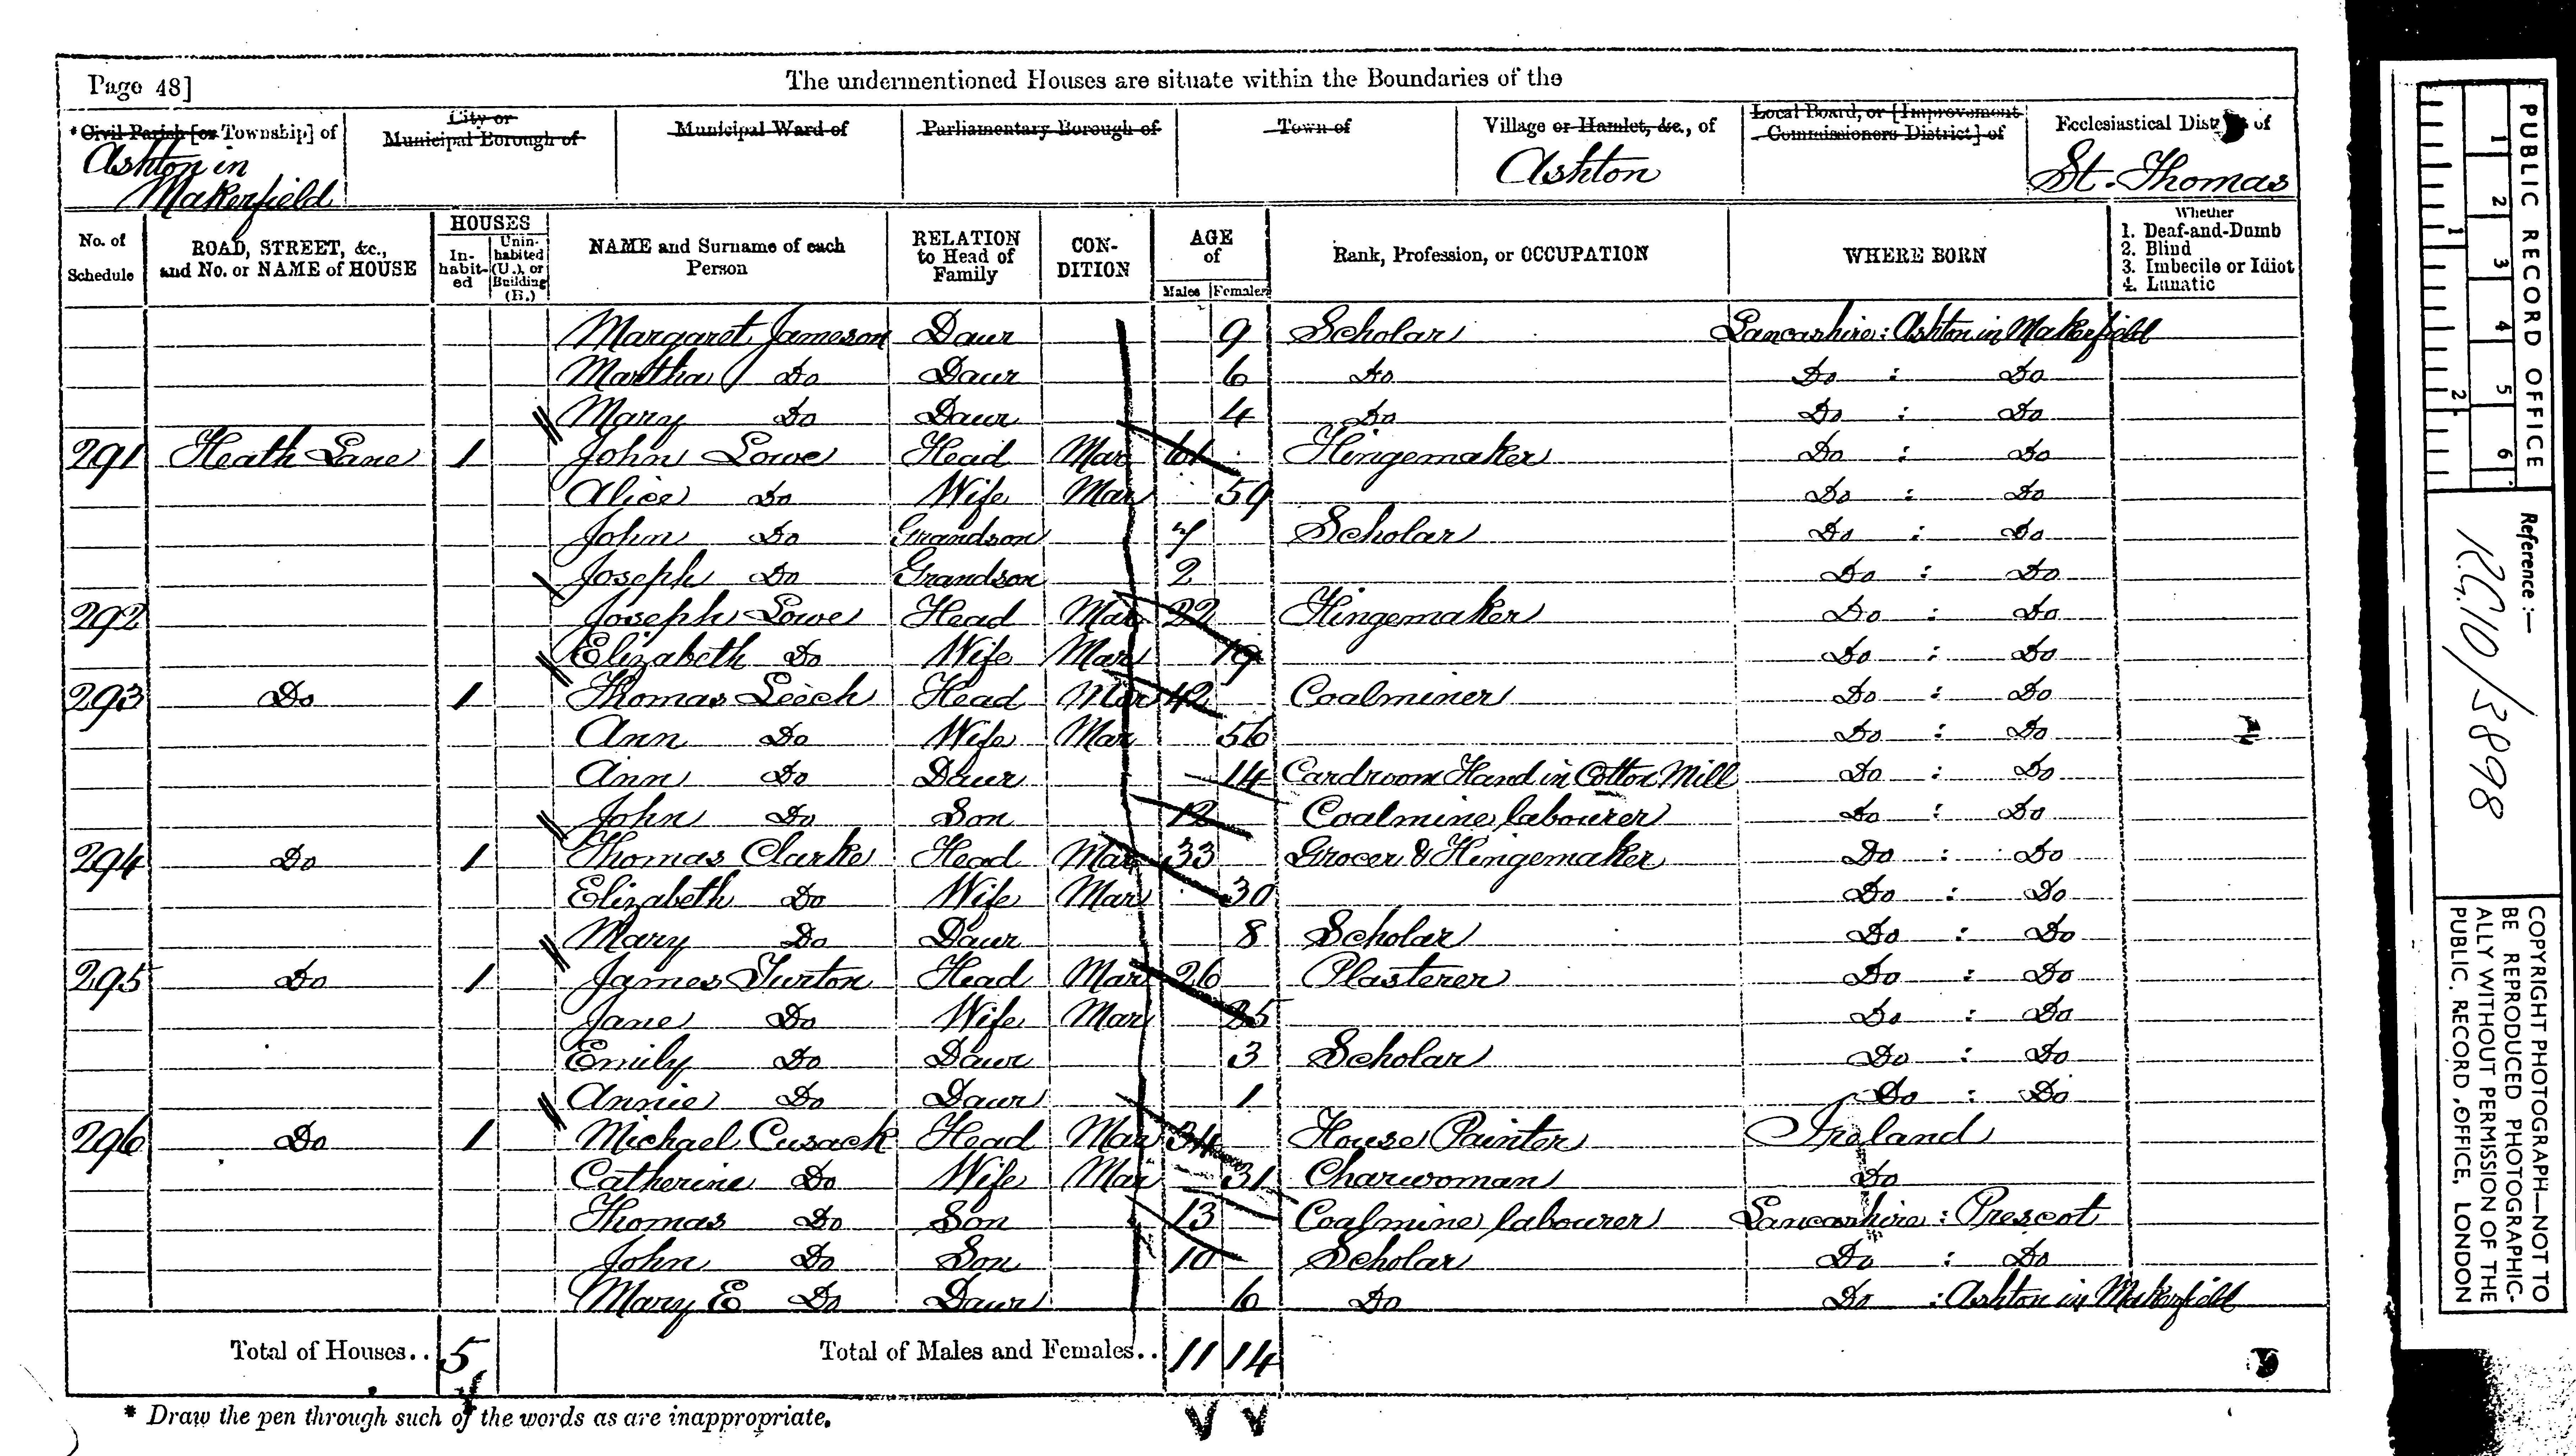 Page 48]
The undermentioned Houses are situate within the Boundaries of the
* Civil Parish [or Township] of
Ashton in
Makerfield
City or
Municipal Borough of
Municipal Ward of
Parliamentary Borough of
Town of
Village or Hamlet, &c., of
Ashton
Local Board, or [Improvement
Commissioners District] of
Ecclesiastical District of
St. Thomas
No. of
Schedule
ROAD, STREET, &c.,
and No. or NAME of HOUSE
HOUSES
In-
habit-
ed
Unin-
habited
(U.), or
Building
(B.)
NAME and Surname of each
Person
RELATION
to Head of
Family
CON-
DITION
AGE
of
Males Females
Rank, Profession, or OCCUPATION
WHERE BORN
Whether
1. Deaf-and-Dumb
2. Blind
3. Imbecile or Idiot
4. Lunatic
Margaret Jameson Daur 9 Scholar Lancashire: Ashton in Makerfield
Martha Do Daur 6 Do Do : Do
Mary Do Daur 4 Do Do : Do
291 Heath Lane 1 John Lowe Head Mar 61 Hingemaker Do : Do
Alice Do Wife Mar 59 Do : Do
John Do Grandson 7 Scholar Do : Do
Joseph Do Grandson 2 Do : Do
292 Joseph Lowe Head Mar 22 Hingemaker Do : Do
Elizabeth Do Wife Mar 19 Do : Do
293 Do 1 Thomas Leech Head Mar 42 Coalminer Do : Do
Ann Do Wife Mar 56 Do : Do
Ann Do Daur 14 Cardroom Hand in Cotton Mill Do : Do
John Do Son 12 Coalmine labourer Do : Do
294 Do 1 Thomas Clarke Head Mar 33 Grocer & Hingemaker Do : Do
Elizabeth Do Wife Mar 30 Do : Do
Mary Do Daur 8 Scholar Do : Do
295 Do 1 James Turton Head Mar 26 Plasterer Do : Do
Jane Do Wife Mar 25 Do : Do
Emily Do Daur 3 Scholar Do : Do
Annie Do Daur 1 Do : Do
296 Do 1 Michael Cusack Head Mar 34 House Painter Ireland
Catherine Do Wife Mar 31 Charwoman Do
Thomas Do Son 13 Coalmine labourer Lancashire : Prescot
John Do Son 10 Scholar Do : Do
Mary E Do Daur 6 Do Do : Ashton in Makerfield
Total of Houses.. 5
Total of Males and Females.. 11 14
* Draw the pen through such of the words as are inappropriate.
PUBLIC RECORD OFFICE
1 2 3 4 5 6
1 2
Reference :—
R.G. 10/3898
COPYRIGHT PHOTOGRAPH—NOT TO
BE REPRODUCED PHOTOGRAPHIC-
ALLY WITHOUT PERMISSION OF THE
PUBLIC RECORD OFFICE, LONDON